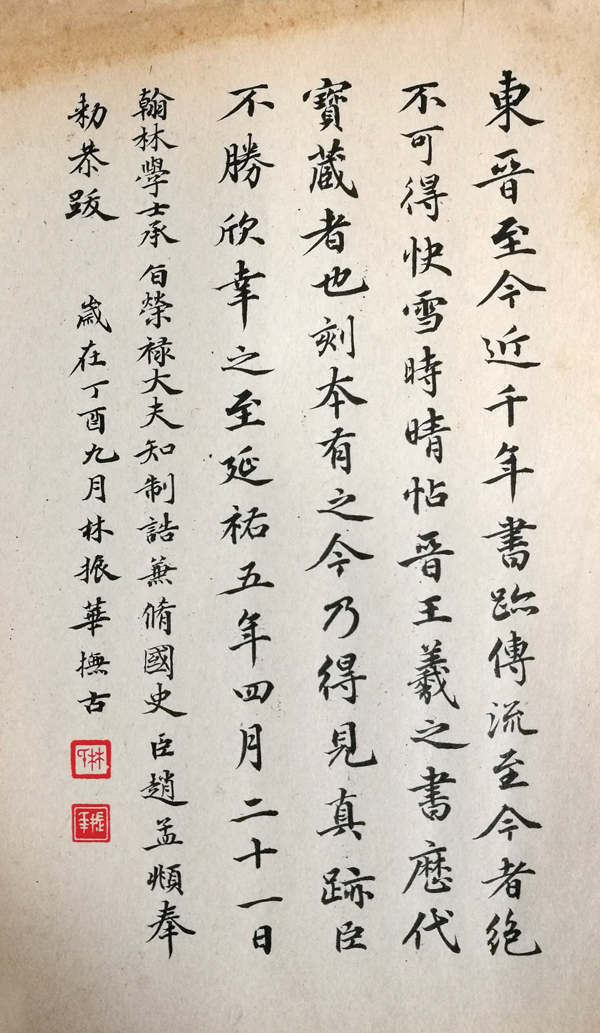 東晋至今近千年書跡傳流至今者絶
不可得快雪時晴帖晋王羲之書歷代
寶蔵者也刻本有之今乃得見真跡臣
不勝欣幸之至延祐五年四月二十一日
翰林學士承旨榮禄大夫知制誥兼脩國史臣趙孟頫奉
勑恭跋 歲在丁酉九月林振華撫古